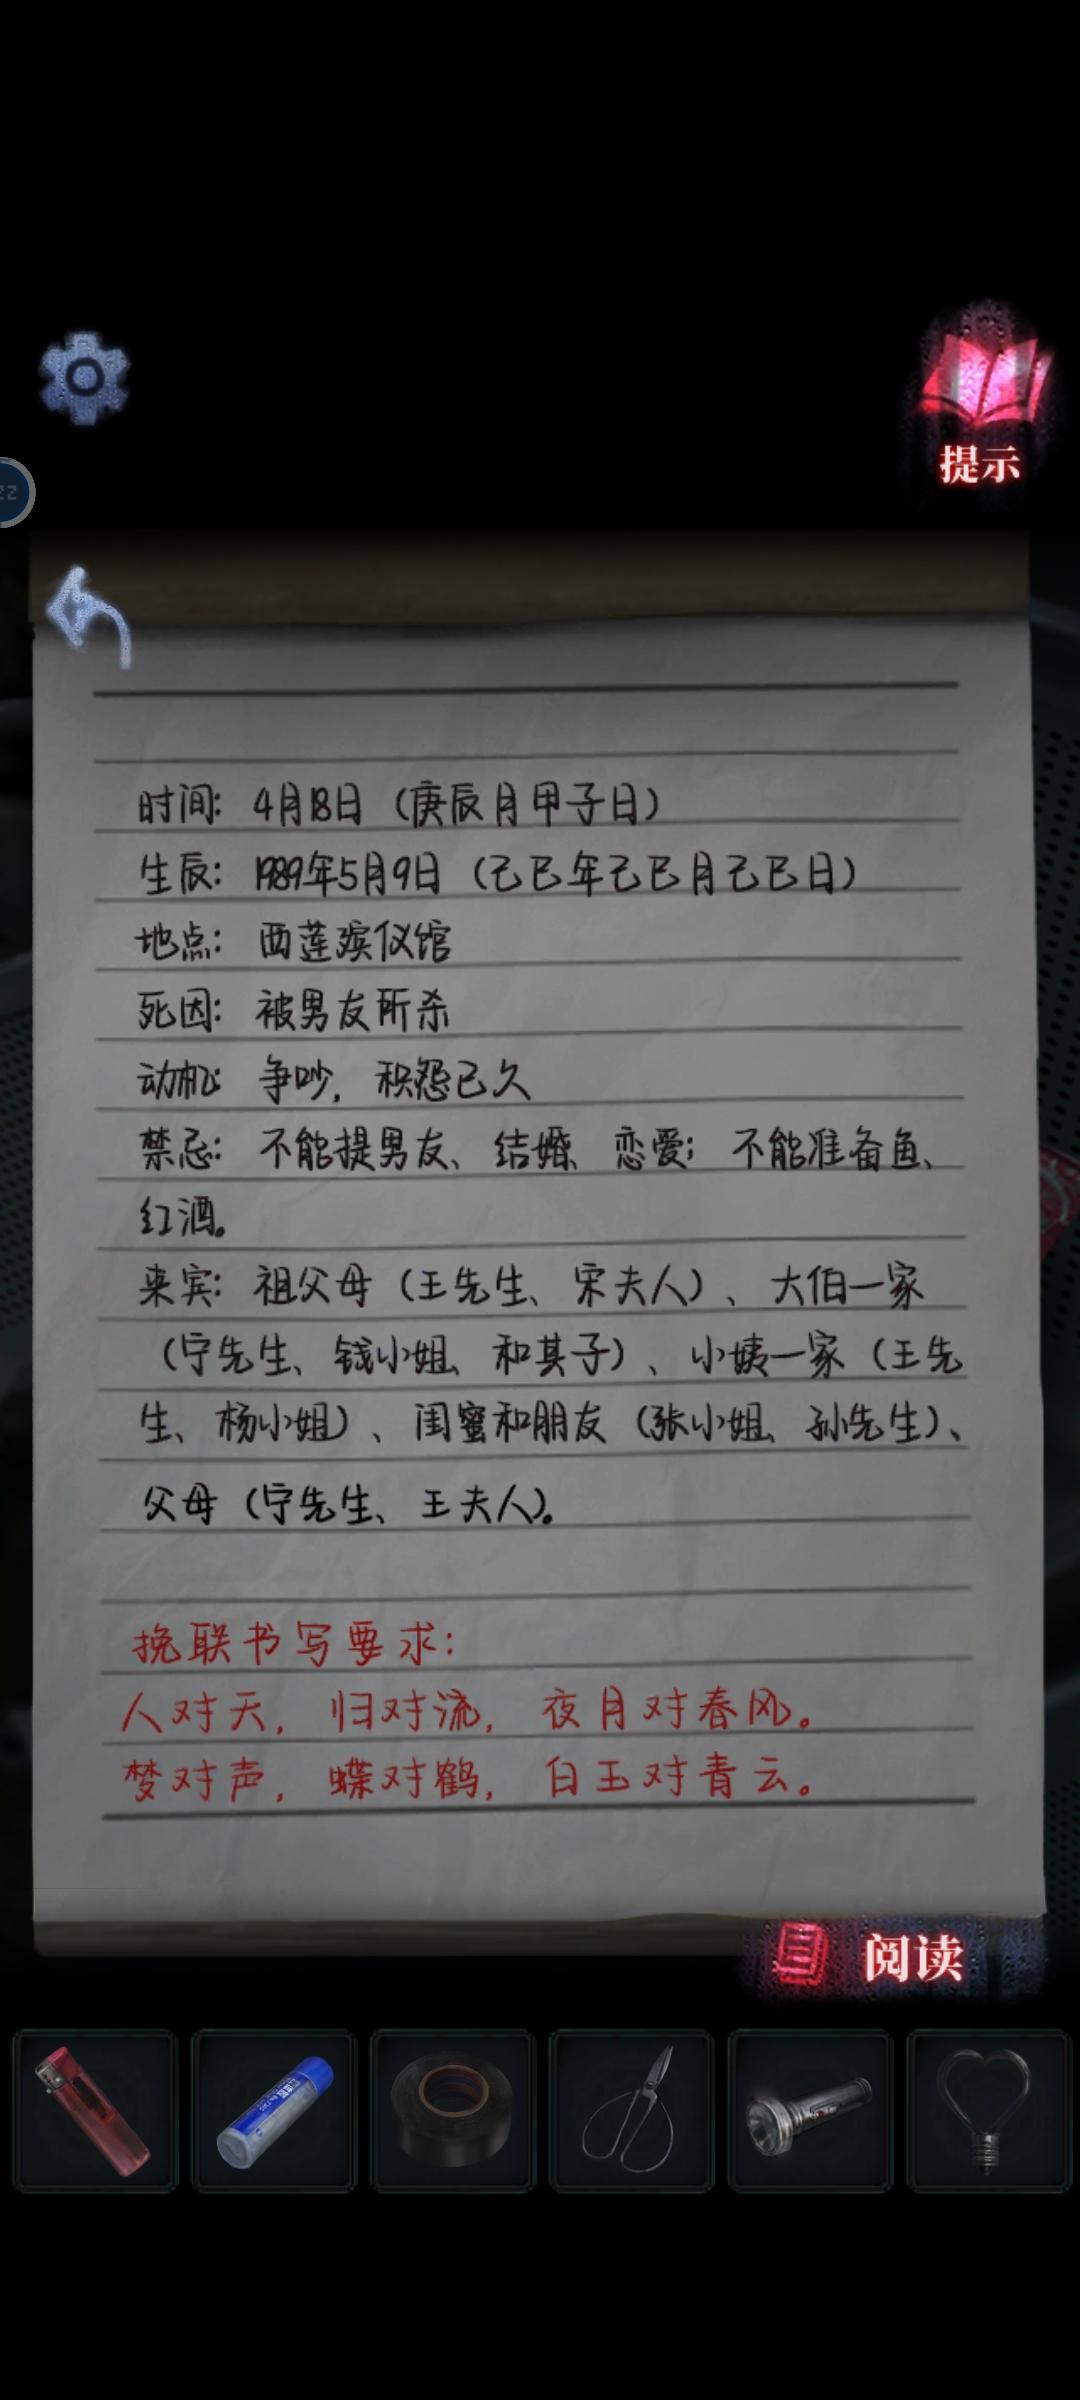 提示
时间：4月18日（庚辰月甲子日）
生辰：1989年5月9日（己巳年己巳月己巳日）
地点：西莲殡仪馆
死因：被男友所杀
动机：争吵，积怨已久
禁忌：不能提男友、结婚、恋爱；不能准备鱼、
红酒。
来宾：祖父母（王先生、宋夫人）、大伯一家
（宁先生、钱小姐、和其子）、小姨一家（王先
生、杨小姐）、闺蜜和朋友（张小姐、孙先生）、
父母（宁先生、王夫人）。
挽联书写要求：
人对天，归对流，夜月对春风。
梦对声，蝶对鹤，白玉对青云。
阅读